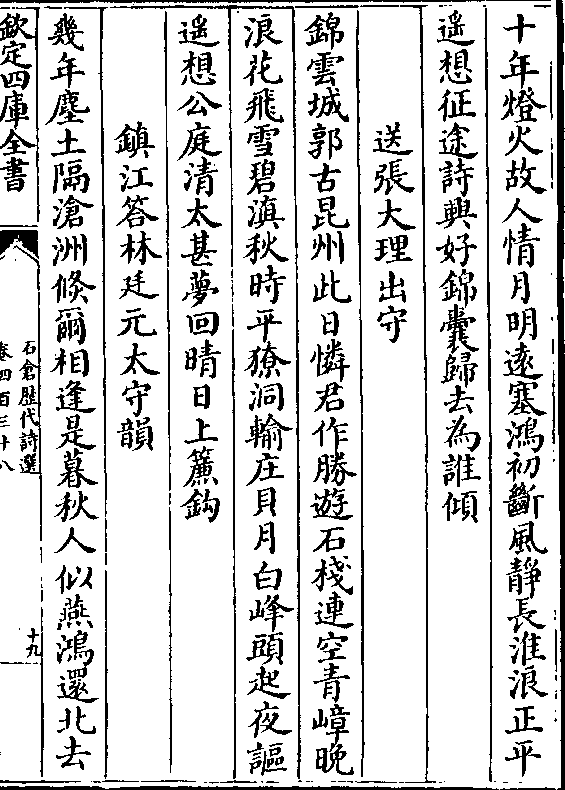 十年燈火故人情月明遠塞鴻初斷風靜長淮浪正平
遥想征途詩興好錦囊歸去為誰傾
送張大理出守
錦雲城郭古昆州此日憐君作勝遊石棧連空青嶂晚
浪花飛雪碧滇秋時平獠洞輸庄貝月白峰頭起夜謳
遥想公庭清太甚夢回晴日上簾鈎
鎮江答林廷元太守韻
幾年塵土隔滄洲倐爾相逢是暮秋人似燕鴻還北去
欽定四庫全書
石倉歷代詩選
卷四百三十八
十九